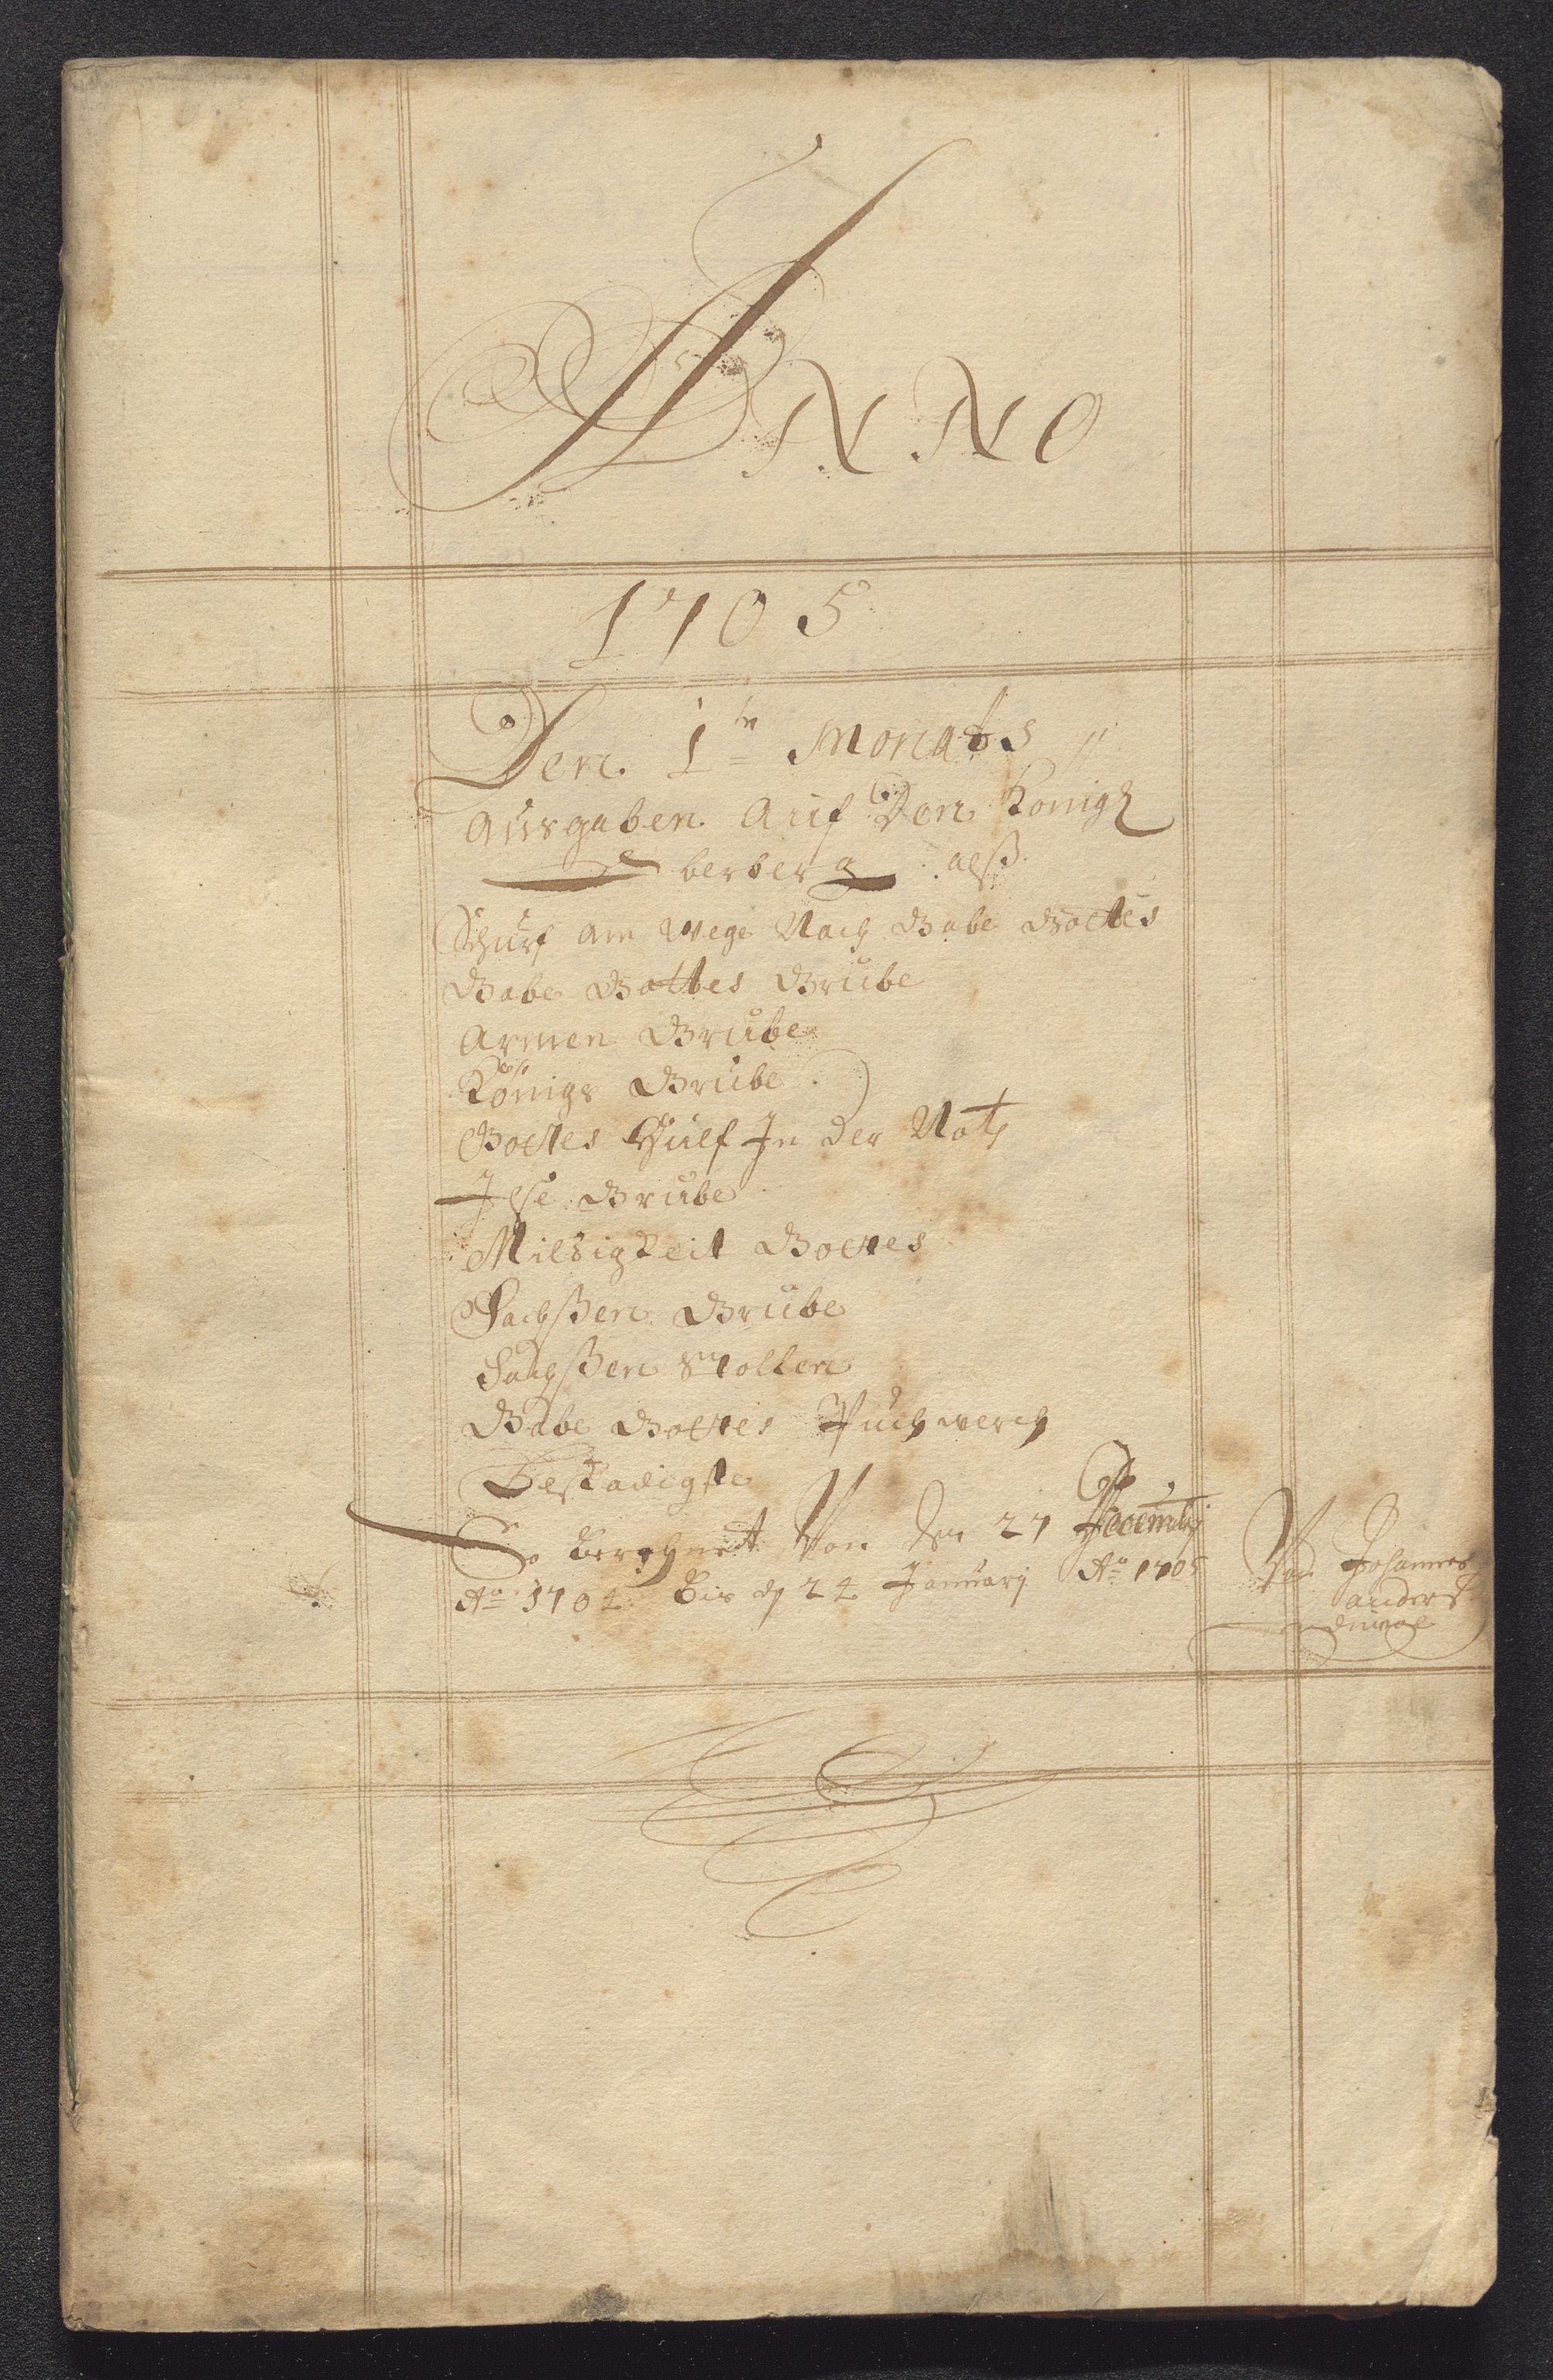 ANNO
1705
Den 1te Monats
Ausgaben Auf Den Königl
berberg alß
Schurf am Wege Nach Gabe Gottes
Gabe Gottes Grube
Armen Grube
Königs Grube
Gottes Hülf In der Noth
Ilse Grube
Mildigkeit Gottes
Sachßen Grube
Sachßen Stollen
Gabe Gottes Puchwerch
Beskadigte
So Berechnet Von den 27 Decembrj
Ao 1704 Bis d 24 Januarj Ao 1705
Johannes
anders